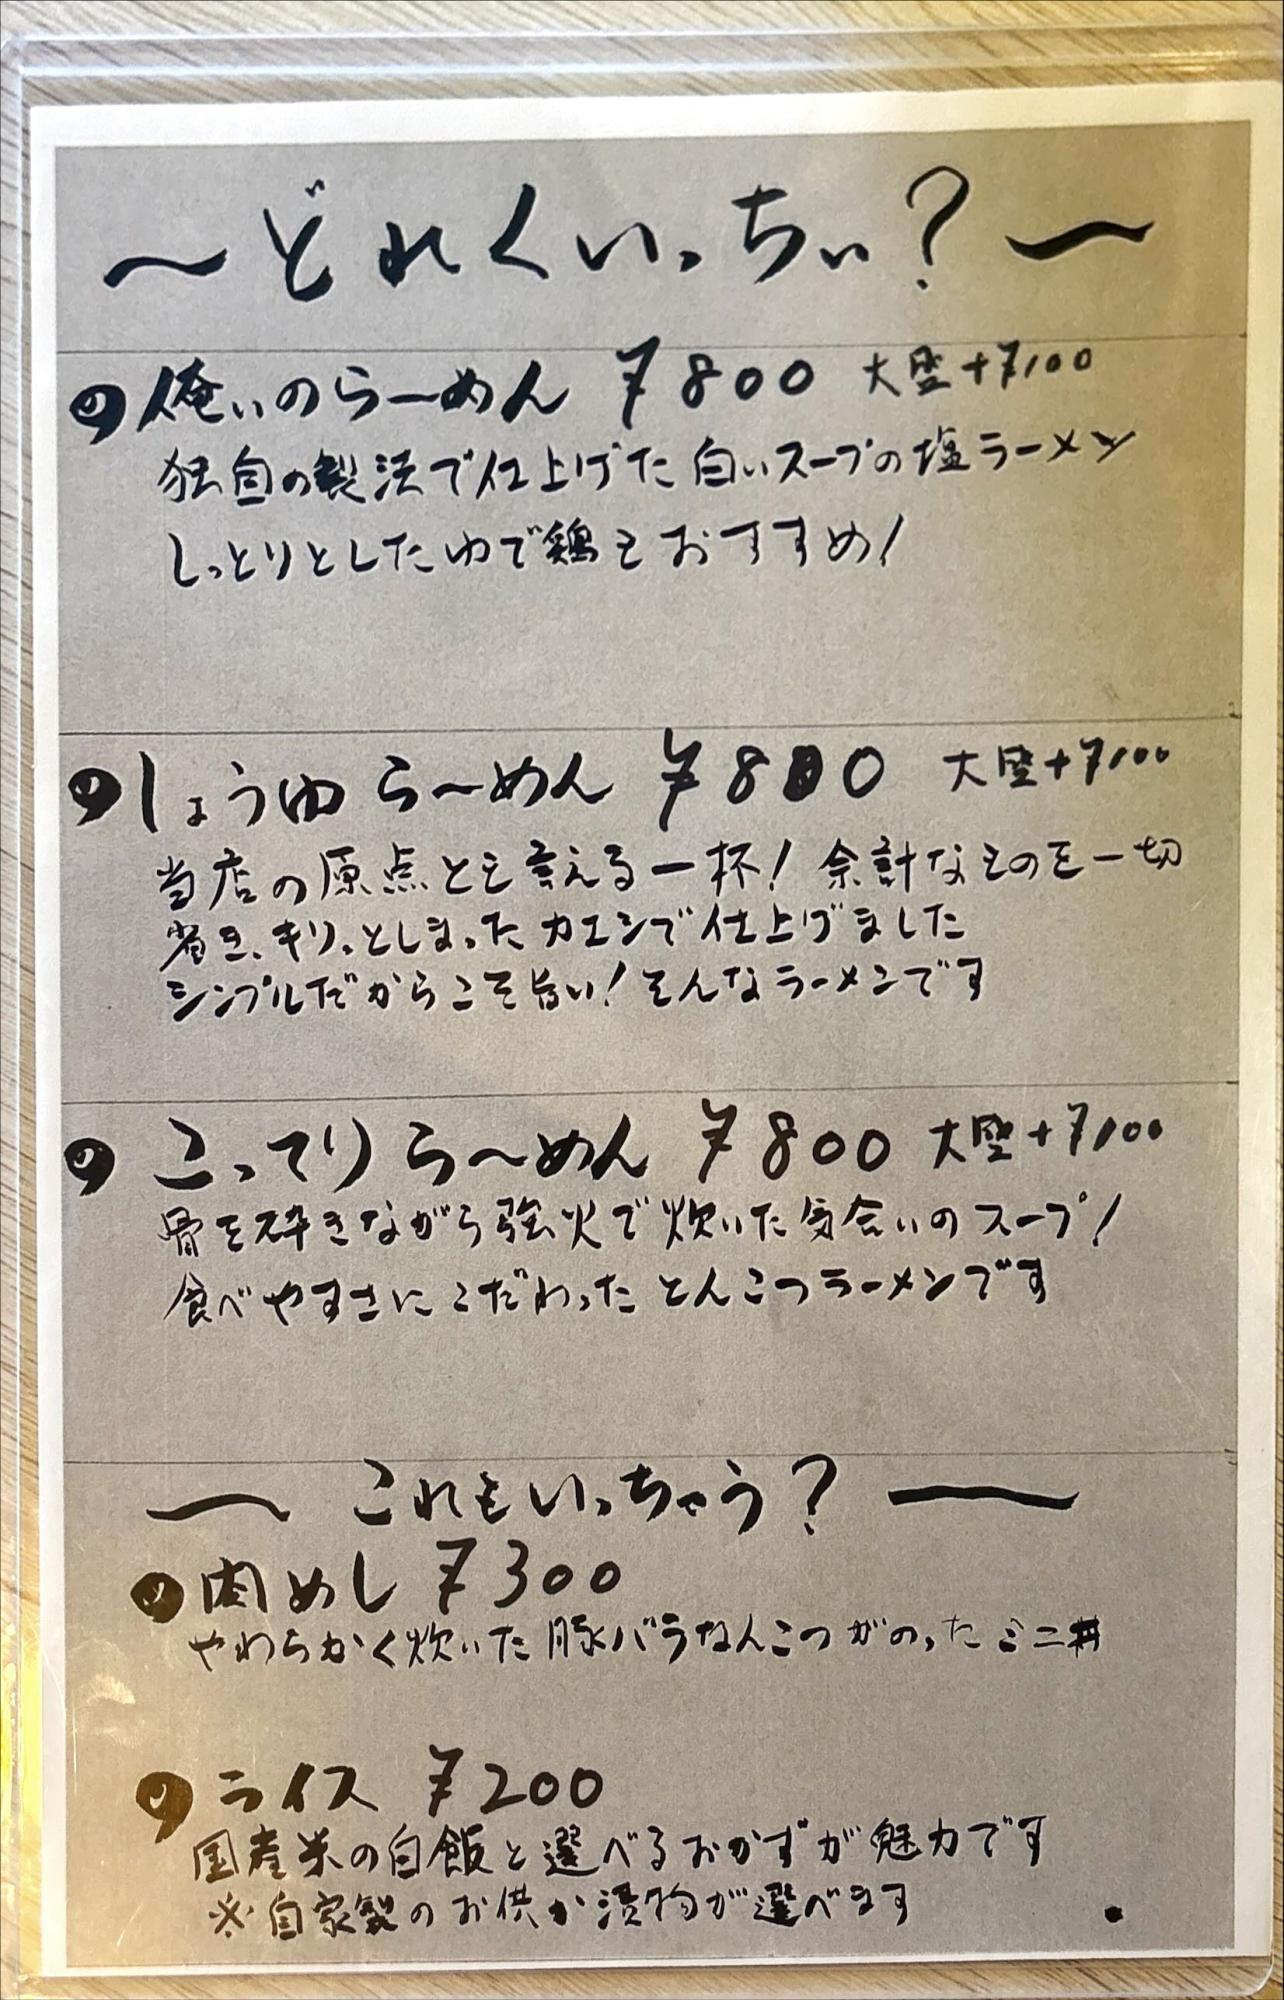 ～どれくいっちぃ？～
俺ぃのらーめん ￥800 大盛+￥100
独自の製法で仕上げた白いスープの塩ラーメン
しっとりとしたゆで鶏もおすすめ！
しょうゆらーめん ￥800 大盛+￥100
当店の原点とも言える一杯！余計なものを一切
省き、キリっとしまったカエシで仕上げました
シンプルだからこそ旨い！そんなラーメンです
こってりらーめん ￥800 大盛+￥100
骨を砕きながら強火で炊いた気合いのスープ！
食べやすさにこだわったとんこつラーメンです
～これもいっちゃう？～
肉めし ￥300
やわらかく炊いた豚バラなんこつがのったミニ丼
ライス ￥200
国産米の白飯と選べるおかずが魅力です
※自家製のお供か漬物が選べます